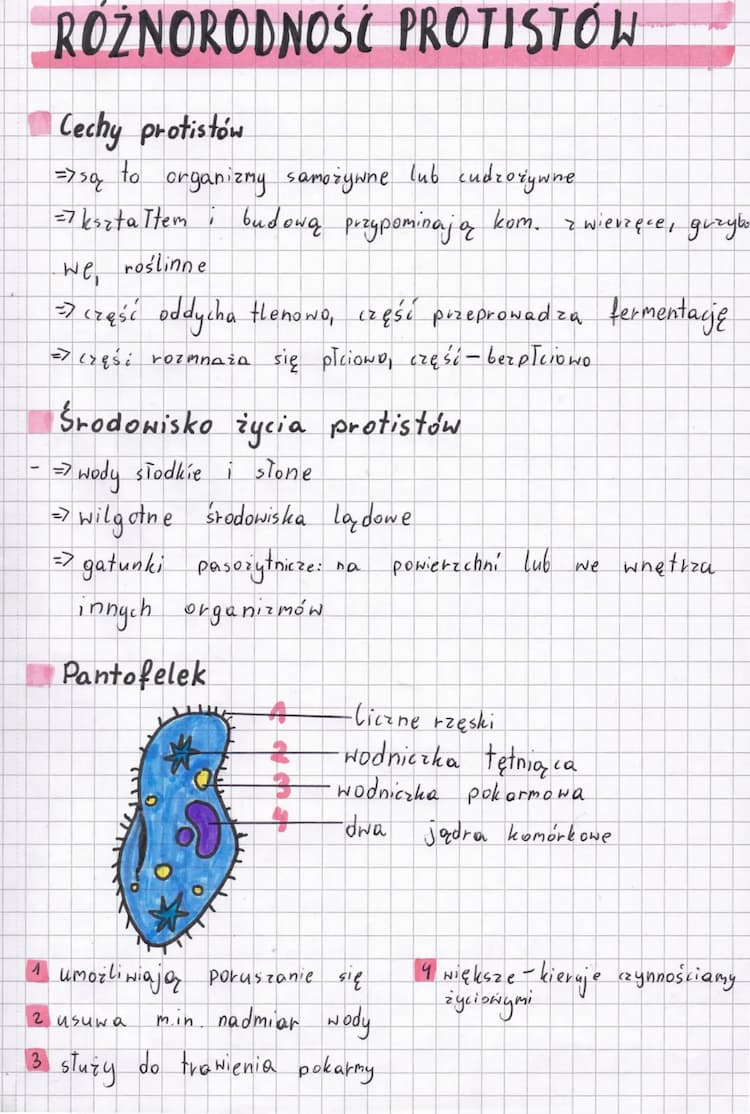 RÓŻNORODNOŚĆ PROTISTÓW
Cechy protistów
=> są to organizmy samożywne lub cudzożywne
=> kształtem i budową przypominają kom. zwierzęce, grzybo
we, roślinne
=> część oddycha tlenowo, część przeprowadza fermentację
=> część rozmnaża się płciowo, część - bezpłciowo
Środowisko życia protistów
- => wody słodkie i słone
=> wilgotne środowiska lądowe
=> gatunki pasożytnicze: na powierzchni lub we wnętrzu
innych organizmów
Pantofelek
1 liczne rzęski
2 wodniczka tętniąca
3 wodniczka pokarmowa
4 dwa jądra komórkowe
1 umożliwiają poruszanie się
2 usuwa m.in. nadmiar wody
3 służy do trawienia pokarmy
4 większe - kieruje czynnościamy
życiowymi